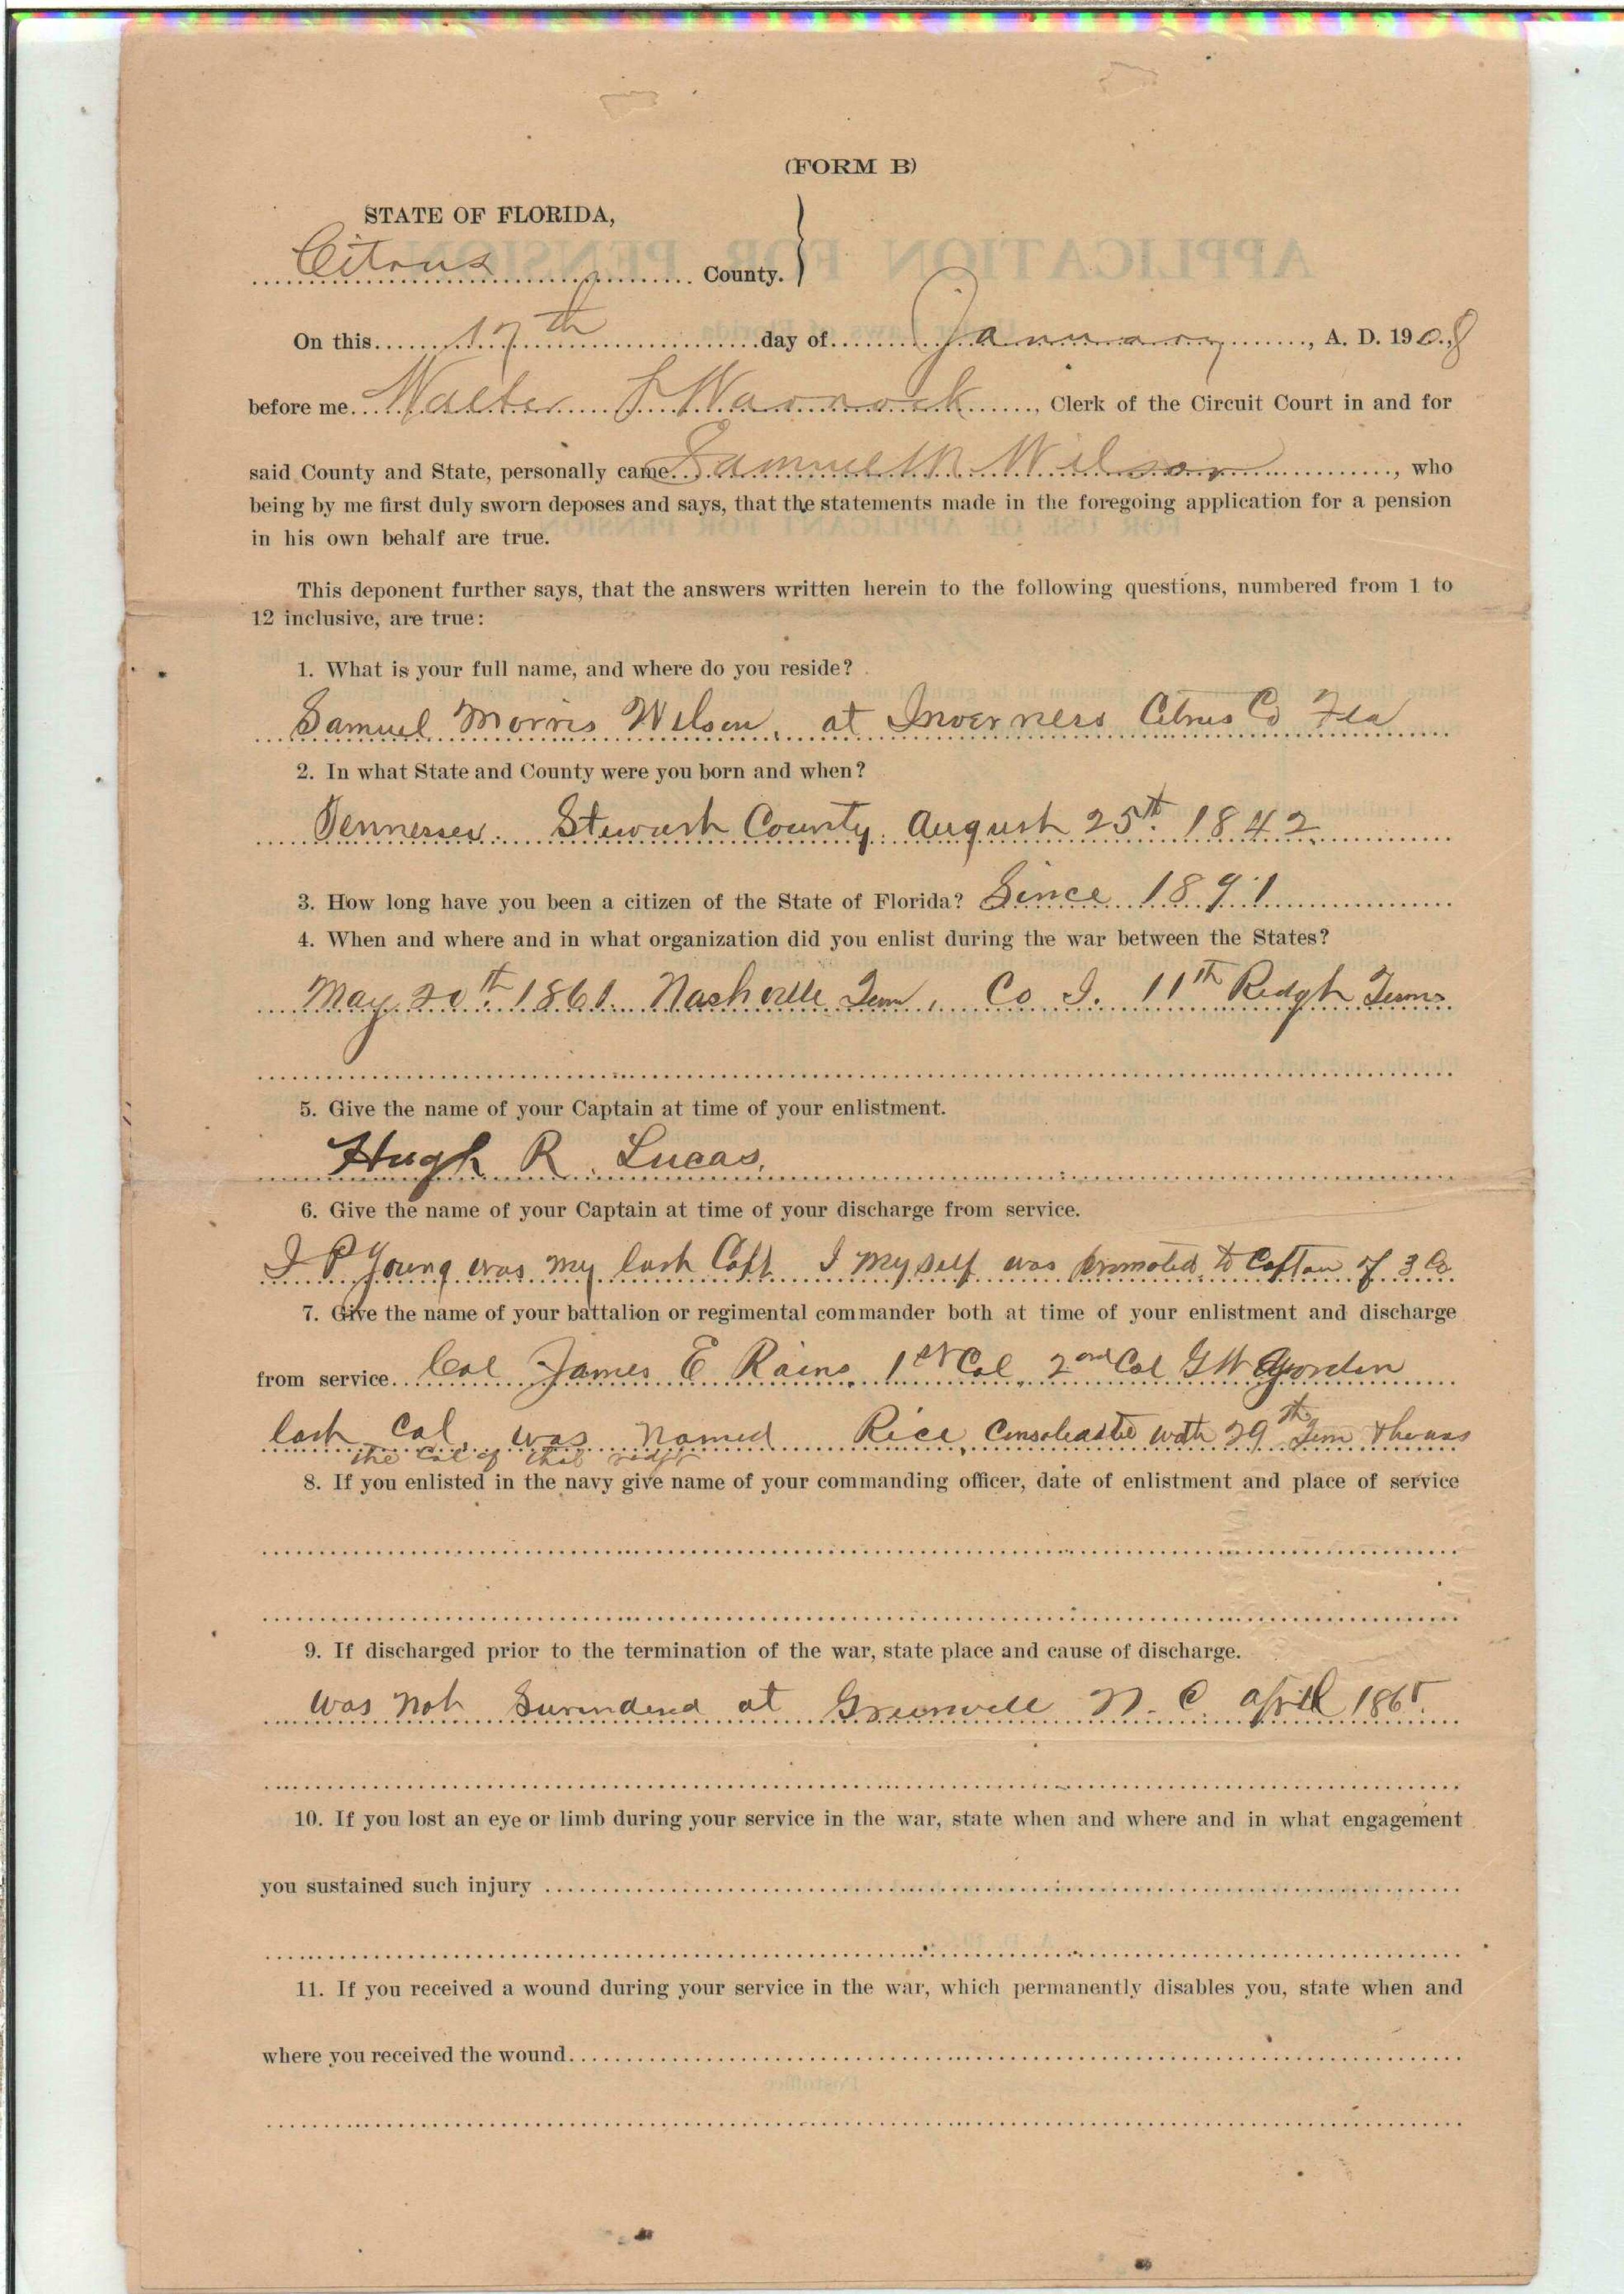 (FORM B)
STATE OF FLORIDA,
Citrus County.
On this 17th day of January, A. D. 1908
before me Walter F Warnock, Clerk of the Circuit Court in and for
said County and State, personally came Samuel M. Wilson, who
being by me first duly sworn deposes and says, that the statements made in the foregoing application for a pension
in his own behalf are true.
This deponent further says, that the answers written herein to the following questions, numbered from 1 to
12 inclusive, are true:
1. What is your full name, and where do you reside?
Samuel Morris Wilson, at Inverness Citrus Co Fla
2. In what State and County were you born and when?
Tennessee. Stewart County. August 25th 1842
3. How long have you been a citizen of the State of Florida? Since 1891
4. When and where and in what organization did you enlist during the war between the States?
May 20th 1861. Nashville Tenn, Co I. 11th Redgt Tenns
5. Give the name of your Captain at time of your enlistment.
Hugh R. Lucas.
6. Give the name of your Captain at time of your discharge from service.
I P Young was my last Capt I myself was promoted to Captan of 3 Co
7. Give the name of your battalion or regimental commander both at time of your enlistment and discharge
from service. Col James E Rains 1st Col, 2nd Col G W Gorden
last Col, was named Rice, with 29th Tenn & he was
the Col of that redgt
8. If you enlisted in the navy give name of your commanding officer, date of enlistment and place of service
9. If discharged prior to the termination of the war, state place and cause of discharge.
Was not at N. C. April 1865.
10. If you lost an eye or limb during your service in the war, state when and where and in what engagement
you sustained such injury
11. If you received a wound during your service in the war, which permanently disables you, state when and
where you received the wound.